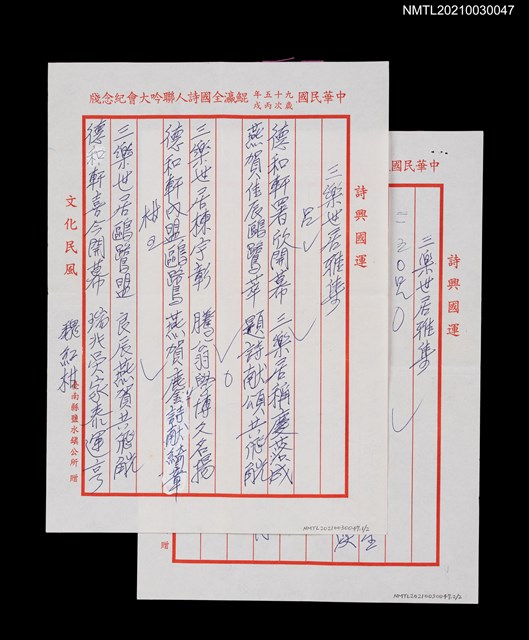 NMTL20210030047
中華民國九十五年歲次丙戌鯤瀛全國詩人聯吟大會紀念牋
詩興國運
三樂世居雅集
德和軒署欣開幕 三樂居稱慶落成
燕賀佳辰鷗鷺萃 題詩献頌共飛觥
三樂世居棟宇彰 騰翁學博久名揚
德和軒內盟鷗鷺 燕賀慶詩献綺章
三樂世居鷗鷺盟 良辰燕賀共飛觥
德和軒喜今開幕 瑞兆吳家泰運亨
魏紅柑
文化民風
臺南縣鹽水鎮公所 贈
NMTL20210030047.1/2
中華民國
詩興國運
三樂世居雅集
贈
NMTL20210030047.2/2